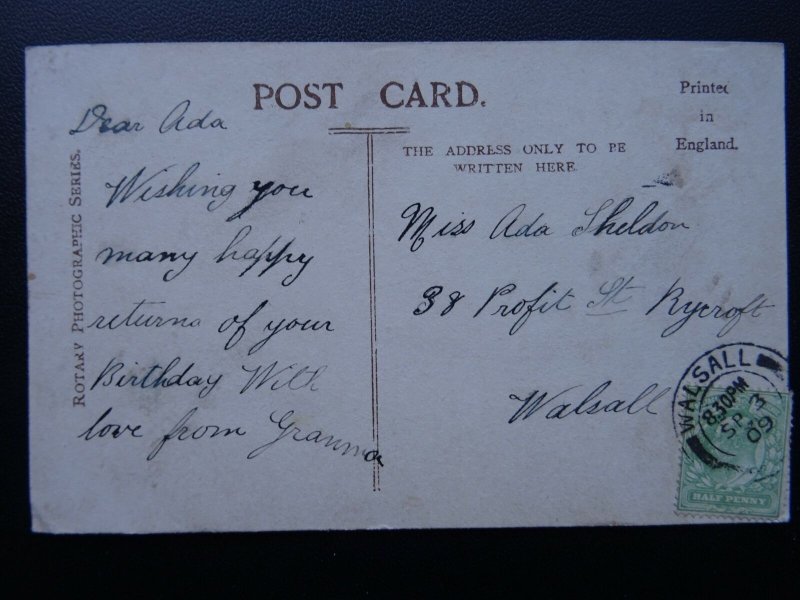 POST CARD.
Printed
in
England.
THE ADDRESS ONLY TO BE
WRITTEN HERE.
ROTARY PHOTOGRAPHIC SERIES.
Dear Ada
Wishing you
many happy
returns of your
Birthday With
love from Granma
Miss Ada Sheldon
38 Profit St Rycroft
Walsall
WALSALL
8.30PM
SP 3
09
HALF PENNY